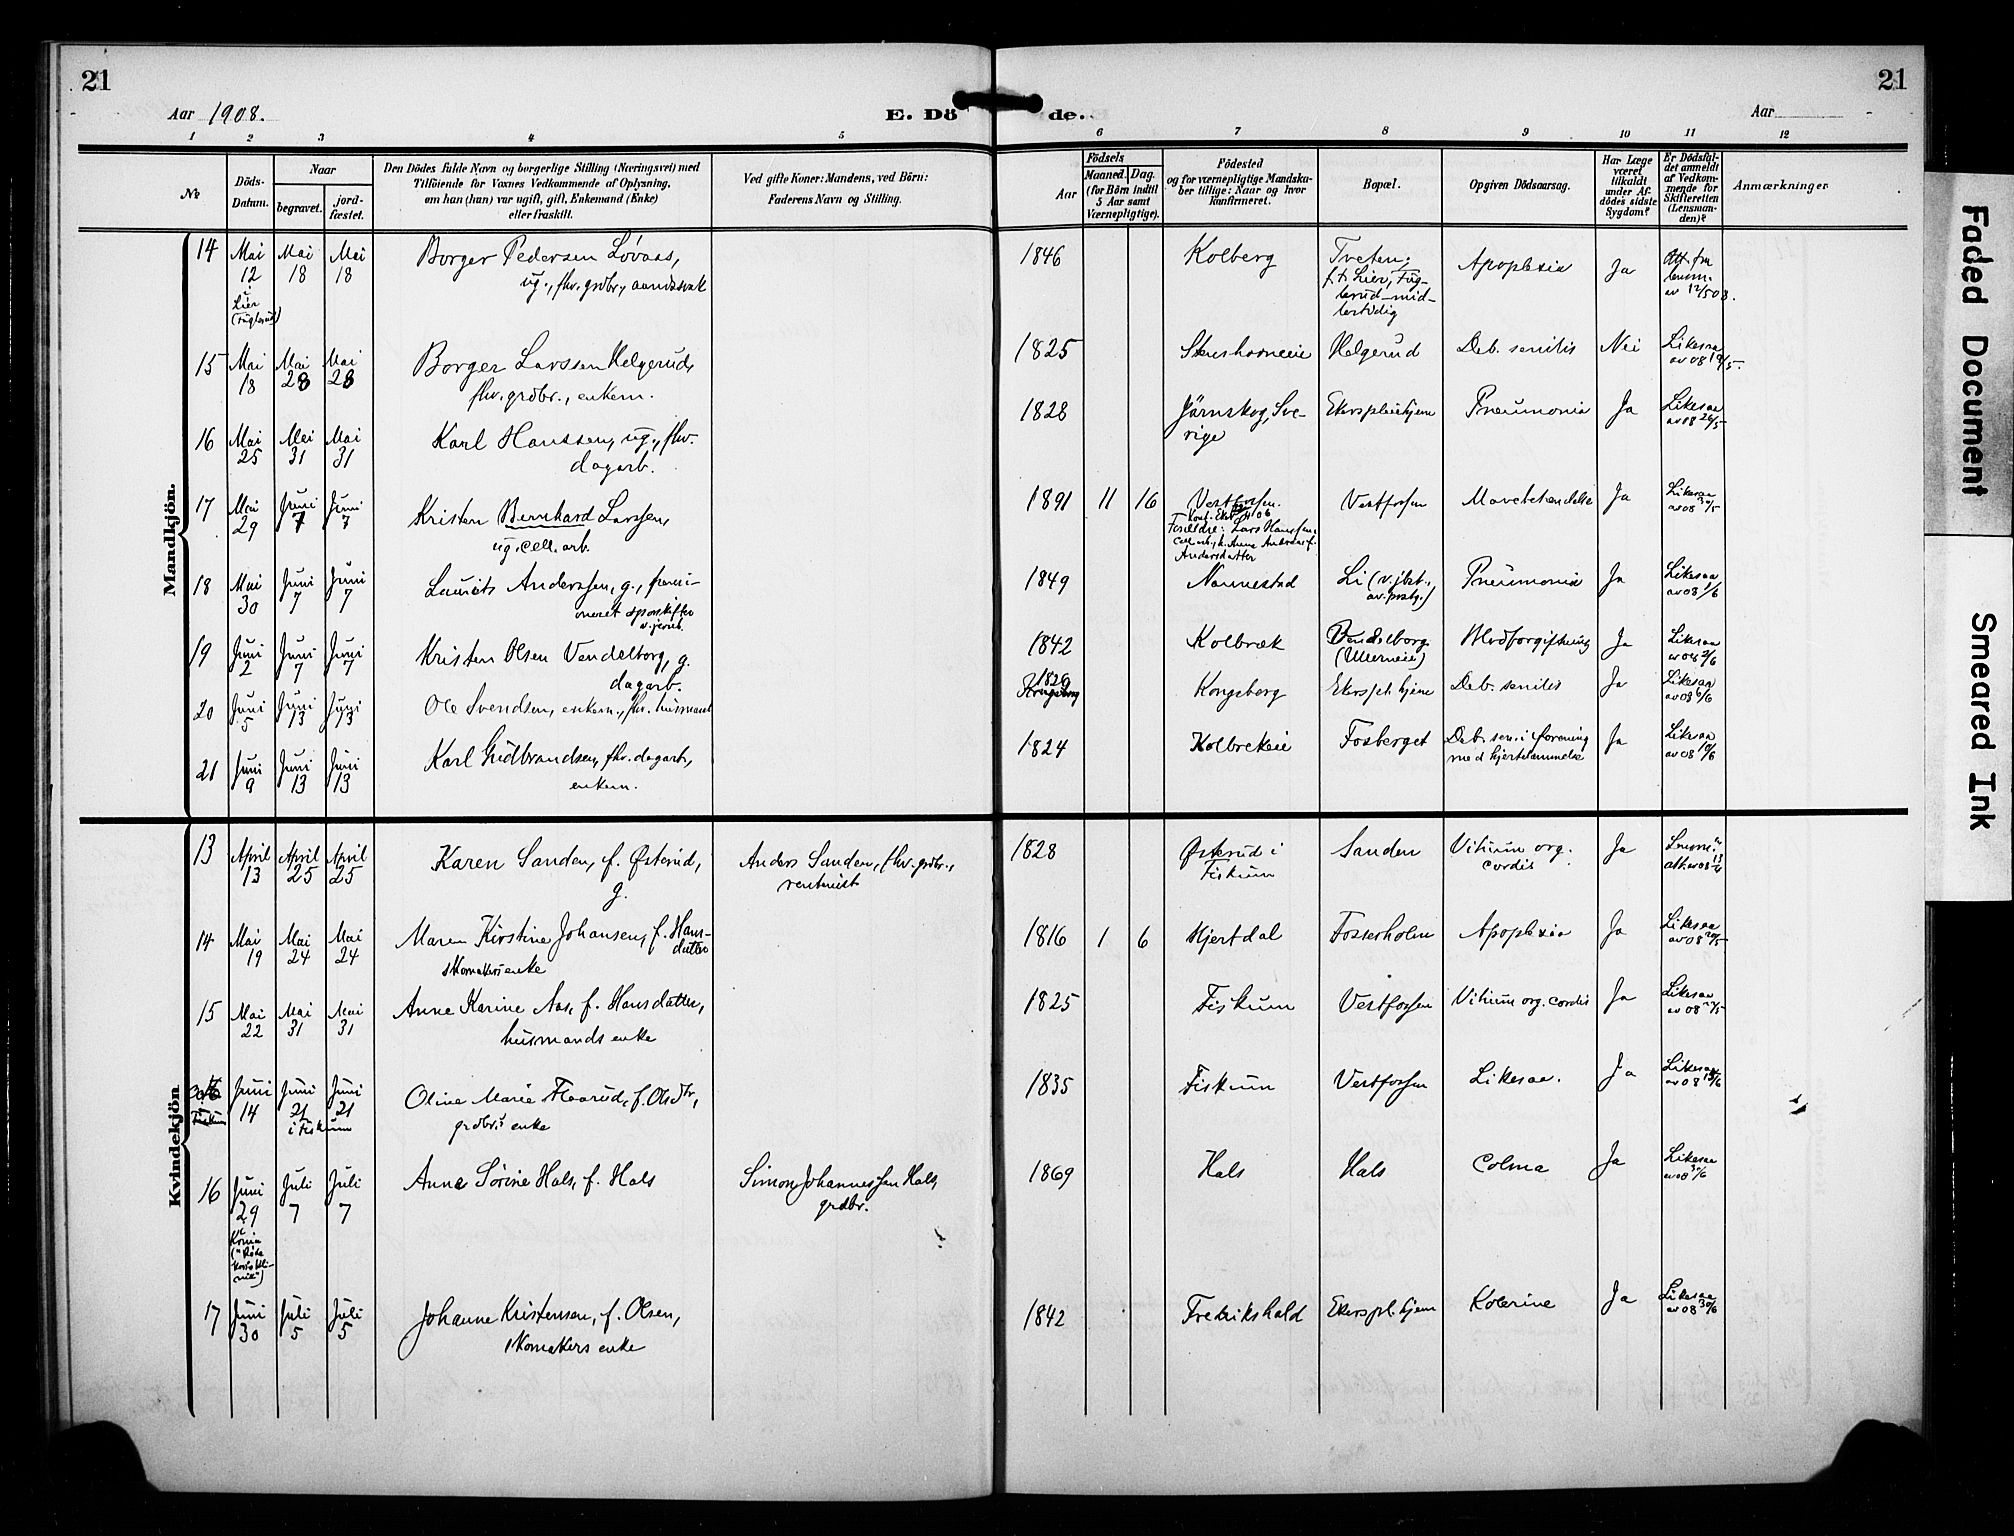 21
21
Aar 1908.
E. Dö de.
Aar
1 2 3 4 5 6 7 8 9 10 11 12
No
Döds-
Datum.
Naar
begravet.
jord-
fæstet.
Den Dödes fulde Navn og borgerlige Stilling (Næringsvei) med
Tilföiende for Voxnes Vedkommende af Oplysning,
om han (hun) var ugift, gift, Enkemand (Enke)
eller fraskilt.
Ved gifte Koner: Mandens, ved Börn:
Faderens Navn og Stilling.
Födsels
Aar
Maaned. Dag.
(for Börn indtil
5 Aar samt
Værnepligtige).
Födested
og for værnepligtige Mandska-
ber tillige: Naar og hvor
konfirmeret.
Bopæl.
Opgiven Dödsaarsag.
Har Læge
været
tilkaldt
under Af-
dödes sidste
Sygdom?
Er Dödsfal-
det anmeldt
af Vedkom-
mende for
Skifteretten
(Lensman-
den)?
Anmærkninger
Mandkjön.
14 Mai Mai Mai Borger Pedersen Lövaas, 1846 Kolberg Tveten; Apoplexia Ja Att. fra
12 18 18 ug., fhv. grdbr., aandssvak f. t. Lier, Fug- lensm.
i Lier lerud-mid- av 12/5 08.
(Fuglerud) lertidig
15 Mai Mai Mai Borger Larssen Helgerud, 1825 Stenshorneie Helgerud Deb. senilis Nei Likesaa
18 28 28 fhv. grdbr., enkem. av 08 19/5.
16 Mai Mai Mai Karl Hanssen, ug., fhv. 1828 Järnskog, Sve- Ekerspleiehjem Pneumonia Ja Likesaa
25 31 31 dagarb. rige av 08 26/5
17 Mai Juni Juni Kristen Bernhard Larssen, 1891 11 16 Vestfossen. Vestfossen Mavebetændelse Ja Likesaa
29 7 7 ug. cell. arb. av 08 30/5
Foreldre: Lars Hanssen,
Andersdatter
18 Mai Juni Juni Laurits Anderssen, g., pensi- 1849 Nannestad Li (v. jbst., Pneumonia Ja Likesaa
30 7 7 oneret sporskifter av. prstg.) av 08 1/6
v. jernb.
19 Juni Juni Juni Kristen Olsen Vendelborg, g. 1842 Kolbræk Vendelborg Blodforgiftning Ja Likesaa
2 7 7 dagarb. (Ullerneie) av 08 2/6
20 Juni Juni Juni Ole Svendsen, enkem., fhv. husmand 1829 Kongsberg Ekerspl. hjem Deb. senilis Ja Likesaa
5 13 13 av 08 6/6
21 Juni Juni Juni Karl Gudbrandsen, fhv. dagarb., 1824 Kolbrekeie Fosberget Deb. sen. i forening Ja Likesaa
9 13 13 enkem. med hjertelammelse av 08 10/6
Kvindekjön
13 April April April Karen Sanden, f. Österud, Anders Sanden, fhv. grdbr., 1828 Österud i Sanden Vitium org. Ja
13 25 25 g. rentenist Fiskum cordis
14 Mai Mai Mai Maren Kirstine Johansen, f. Hans- 1816 1 6 Hjertdal Fosserholm Apoplexia Ja Likesaa
19 24 24 datter av 08 20/5
skomakers enke
15 Mai Mai Mai Anne Karine Aas, f. Hansdatter, 1825 Fiskum Vestfossen Vitium org. cordis Ja Likesaa
22 31 31 husmands enke
Juni Juni Juni Oline Marie Flaarud, f. Olsdtr, 1835 Fiskum Vestfossen Likesaa. Ja Likesaa
Fiskum 14 21 21 grdbr.s enke av 08 15/6
i Fiskum
16 Juni Juli Juli Anne Sörine Hals, f. Hals Simon Johannessen Hals, 1869 Hals Hals Coma Ja Likesaa
29 7 7 grdbr. av 08 30/6
i Kr.nia
("Röde
Kors's kli-
nik")
17 Juni Juli Juli Johanne Kristensen, f. Olsen, 1842 Fredrikshald Ekerspl. hjem Kolerine Ja Likesaa
30 5 5 skomakers enke av 08 30/6
Faded Document
Smeared Ink